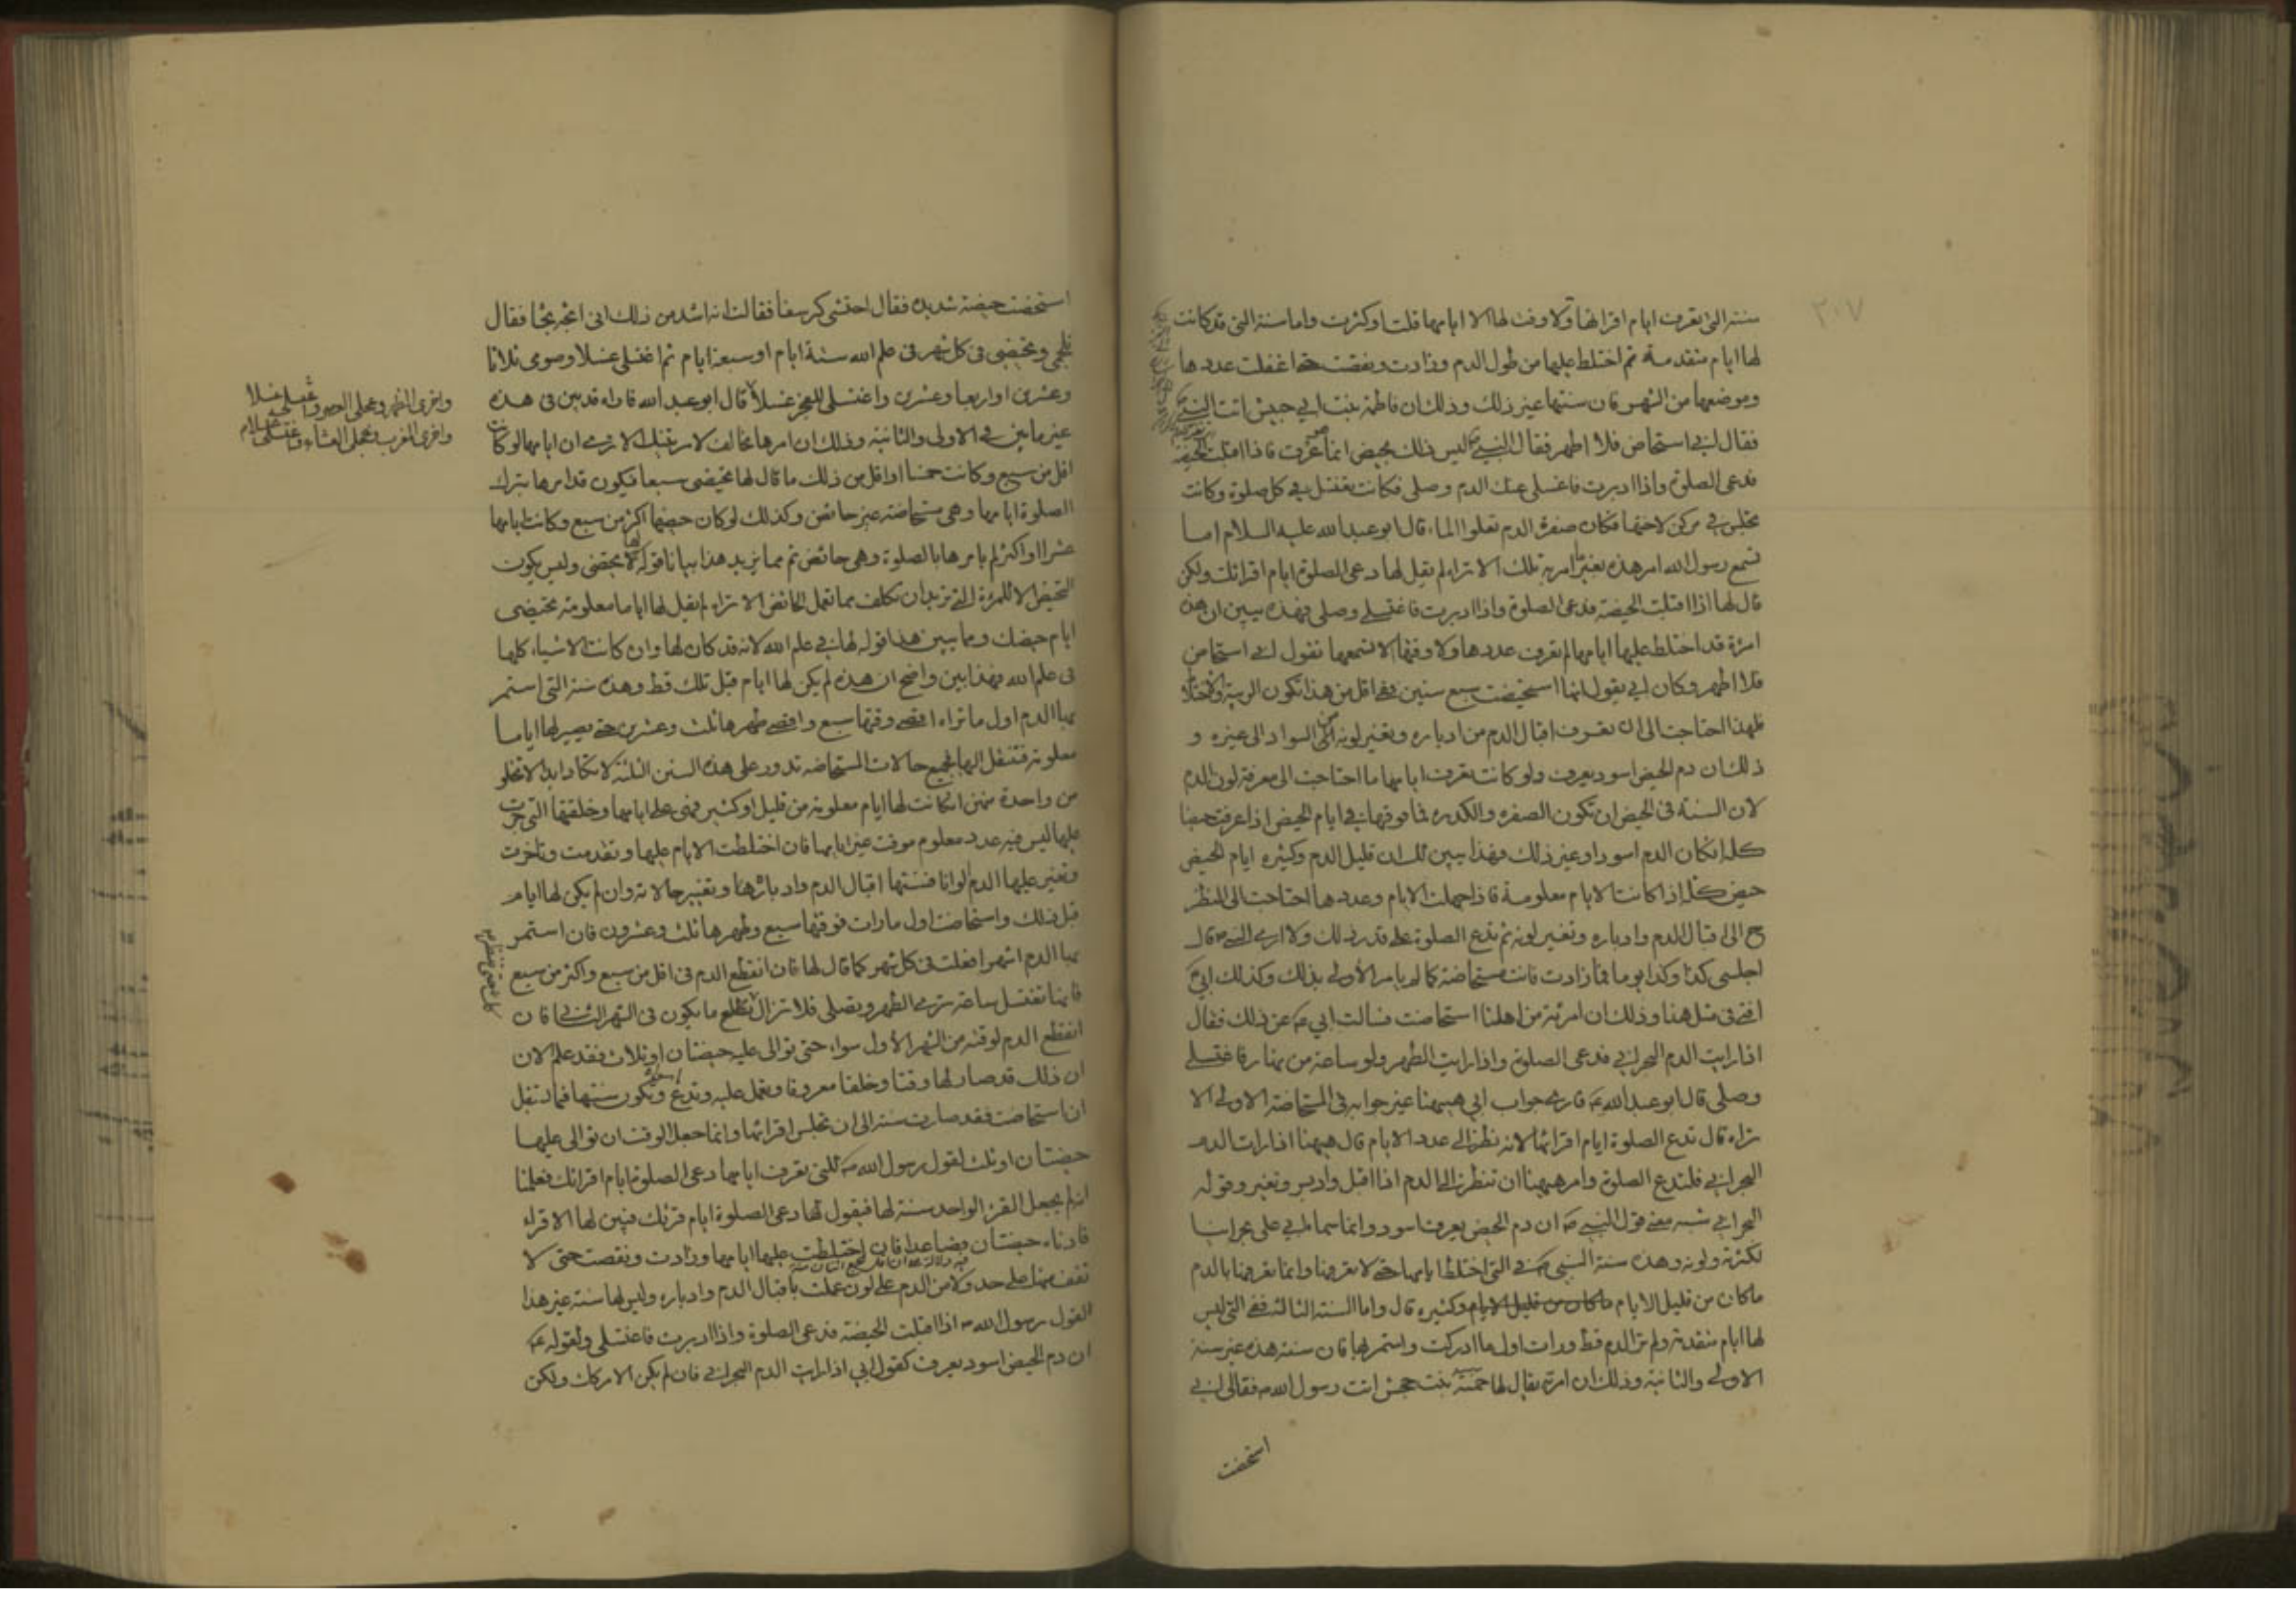 ٢٠٧
سنته التى تعرف ايام اقرائها ولا وقت لها الا ايامها قلت او كثرت واما سنة التى قد كانت
لها ايام متقدمة ثم اختلط عليها من طول الدم وزادت ونقصت حتى اغفلت عددها
وموضعها من الشهر فان سنتها غير ذلك وذلك ان فاطمة بنت ابي حبيش اتت النبي
فقال اني استحاض فلا اطهر فقال النبي ص ليس ذلك بحيض انما عرق فاذا اقبلت الحيضة
فدعى الصلوة واذا ادبرت فاغسلى عنك الدم وصلى فكانت تغتسل في كل صلوة وكانت
تجلس في مركن لاختها فكان صفرة الدم تعلوا الماء قال ابو عبد الله عليه السلام اما
تسمع رسول الله امر هذه بغير ما امر به تلك الا تراه لم يقل لها دعى الصلوة ايام اقرائك ولكن
قال لها اذا اقبلت الحيضة فدعى الصلوة واذا ادبرت فاغتسلي وصلى فهذه يبين ان هذه
امرئة قد اختلط عليها ايامها لم تعرف عددها ولا وقتها الا تسمعها تقول اني استحاض
فلا اطهر وكان ابي يقول انها استحيضت سبع سنين ففي اقل من هذا تكون الريبة والاختلاط
فلهذا احتاجت الى ان تعرف اقبال الدم من ادباره وتغير لونه من السواد الى غيره و
ذلك ان دم الحيض اسود يعرف ولو كانت تعرف ايامها ما احتاجت الى معرفة لون الدم
لان السنة فى الحيض ان تكون الصفرة والكدرة فما فوقها في ايام الحيض اذا عرفت حيضا
كله انكان الدم اسود او غير ذلك فهذا يبين لك ان قليل الدم وكثيره ايام الحيض
حيض كله اذا كانت الايام معلومة فاذا جهلت الايام وعددها احتاجت الى النظر
ح الى اقبال الدم وادباره وتغير لونه ثم تدع الصلوة على قدر ذلك ولا ارى النبي ص قال
اجلسى كذا وكذا يوما فما زادت فانت مستحاضة كما لم يامر الاولى بذلك وكذلك ابي ع
افتى فى مثل هذا وذلك ان امرئة من اهلنا استحاضت فسالت ابي ع عن ذلك فقال
اذا رايت الدم البحراني فدعى الصلوة واذا رايت الطهر ولو ساعة من نهار فاغتسلي
وصلى قال ابو عبد الله ع فارى جواب ابي ههنا غير جوابه فى المستحاضة الاولى الا
تراه قال تدع الصلوة ايام اقرائها لانه نظر الى عدد الايام قال ههنا اذا رات الدم
البحراني فلتدع الصلوة وامر ههنا ان تنظر الى الدم اذا اقبل وادبر وتغير وقوله
البحراني شبه معنى قول النبي ص ان دم الحيض يعرف اسود وانما سماه ابي على بحرانيا
لكثرته ولونه وهذه سنة النبي ص في التى اختلط ايامها حتى لا تعرفها وانما تعرفها بالدم
ماكان من قليل الايام ماكان من قليل الايام وكثيره قال واما السنة الثالثة ففي التى ليس
لها ايام متقدمة ولم تر الدم قط ورات اول ما ادركت واستمر بها فان سنة هذه غير سنة
الاولى والثانية وذلك ان امرئة يقال لها حمنة بنت جحش اتت رسول الله ص فقال اني
استحضت
استحضت حيضة شديدة فقال احتشى كرسفا فقالت انه اشد من ذلك انى اثجه ثجا فقال
تلجمى وتحيضى فى كل شهر فى علم الله ستة ايام او سبعة ايام ثم اغتسلى غسلا وصومى ثلاثا
وعشرى او اربعا وعشرى واغتسلى للفجر غسلا قال ابو عبد الله فاراه قد بين فى هذه
واخرى الظهر وعجلى العصر واغتسلى غسلا
واخرى المغرب وعجلى العشاء واغتسلى غسلا
غير ما بين في الاولى والثانية وذلك ان امرها مخالف لامر تينك الا ترى ان ايامها لو كانت
اقل من سبع وكانت خمسا او اقل من ذلك ما قال لها تحيضى سبعا فيكون قد امرها بترك
الصلوة ايامها وهى مستحاضة غير حائض وكذلك لو كان حيضها اكثر من سبع وكانت ايامها
عشرا او اكثر لم يامرها بالصلوة وهى حائض ثم مما يزيد هذا بيانا قوله لها تحيضى وليس يكون
التحيض الا للمرئة التى تريد ان تكلف مما تعمل الحائض الا تراه لم يقل لها اياما معلومة تحيضى
ايام حيضك ومما يبين هذا قوله لها في علم الله لانه قد كان لها وان كانت الاشياء كلها
فى علم الله فهذا بين واضح ان هذه لم يكن لها ايام قبل تلك قط وهذه سنة التى استمر
بها الدم اول ما تراه اقصى وقتها سبع واقصى طهرها ثلث وعشرين حتى يصير لها اياما
معلومة فتنتقل اليها فجميع حالات المستحاضة تدور على هذه السنن الثلثة لا تكاد ابدا تخلو
من واحدة منهن انكانت لها ايام معلومة من قليل او كثير فهى على ايامها وخلقتها التى جرت
عليها ليس فيه عدد معلوم موقت غير ايامها فان اختلطت الايام عليها وتقدمت وتاخرت
وتغير عليها الدم الوانا فسنتها اقبال الدم وادبارها وتغيير حالاته وان لم يكن لها ايام
قبل ذلك واستحاضت اول ما رات فوقتها سبع وطهرها ثلث وعشرون فان استمر
بها الدم اشهرا فعلت فى كل شهر كما قال لها فان انقطع الدم فى اقل من سبع واكثر من سبع
فانها تغتسل ساعة ترى الطهر وتصلى فلا تزال كذلك حتى تنظر ما يكون فى الشهر الثاني فان
انقطع الدم لوقته من الشهر الاول سواء حتى توالى عليه حيضتان او ثلاث فقد علم الان
ان ذلك قد صار لها وقتا وخلقا معروفا وتعمل عليه وتدع ما سواه وتكون سنتها فيما تستقبل
ان استحاضت فقد صارت سنته الى ان تجلس اقرائها وانما جعل الوقت ان توالى عليها
حيضتان او ثلث لقول رسول الله ص للتى تعرف ايامها دعى الصلوة ايام اقرائك فعلمنا
انه لم يجعل القرء الواحد سنة لها فيقول لها دعى الصلوة ايام قرئك فبين لها الاقراء
فادناه حيضتان فصاعدا فان اختلطت عليها ايامها وزادت ونقصت حتى لا
تقف منها على حد ولا من الدم على لون عملت باقبال الدم وادباره وليس لها سنة غير هذا
لقول رسول الله ص اذا اقبلت الحيضة فدعى الصلوة واذا ادبرت فاغتسلى ولقوله ع
ان دم الحيض اسود يعرف كقول ابي اذا رايت الدم البحراني فان لم يكن الامر كك ولكن